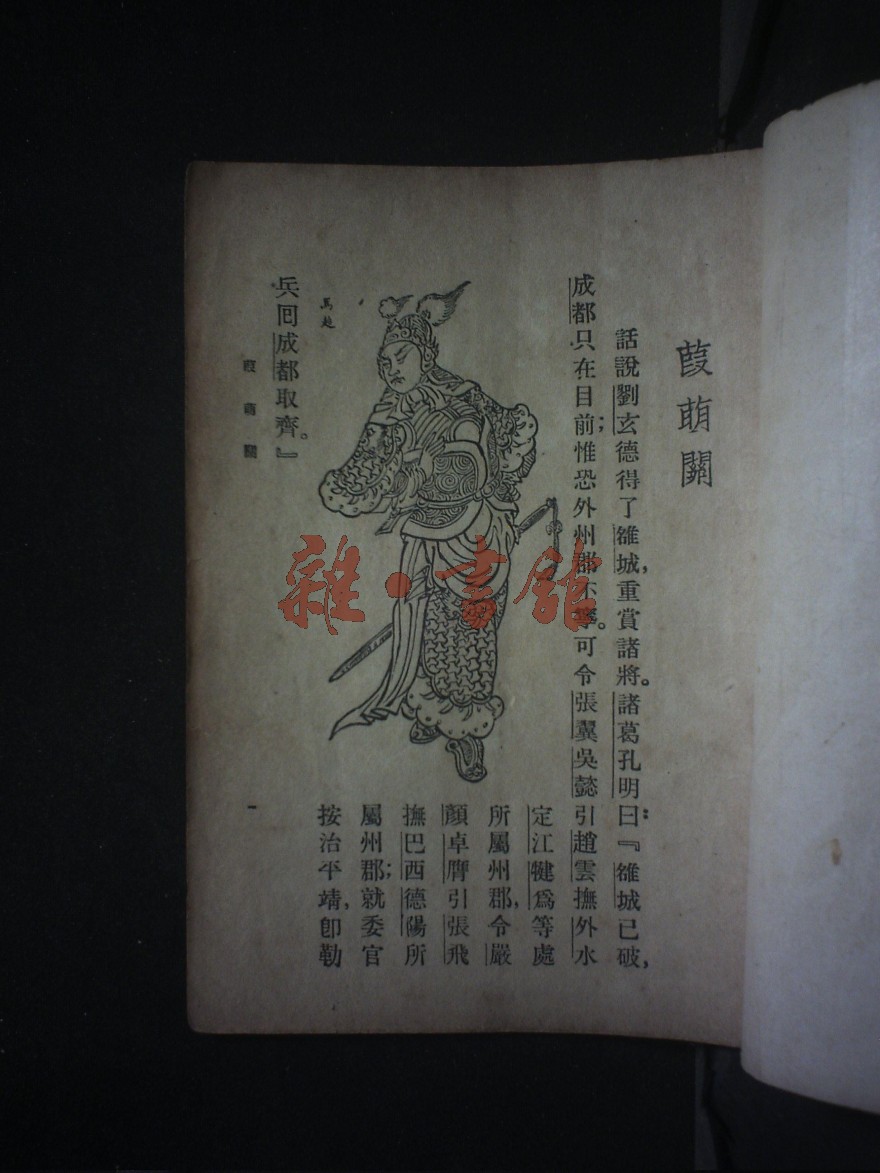 葭萌關
話說劉玄德得了雒城,重賞諸將。諸葛孔明曰:『雒城已破,
成都只在目前;惟恐外州郡不寧。可令張翼吳懿引趙雲撫外水
定江犍爲等處
所屬州郡,令嚴
顏卓膺引張飛
撫巴西德陽所
屬州郡;就委官
按治平靖,卽勒
兵囘成都取齊。』
馬超
葭萌關
一
雜·書館